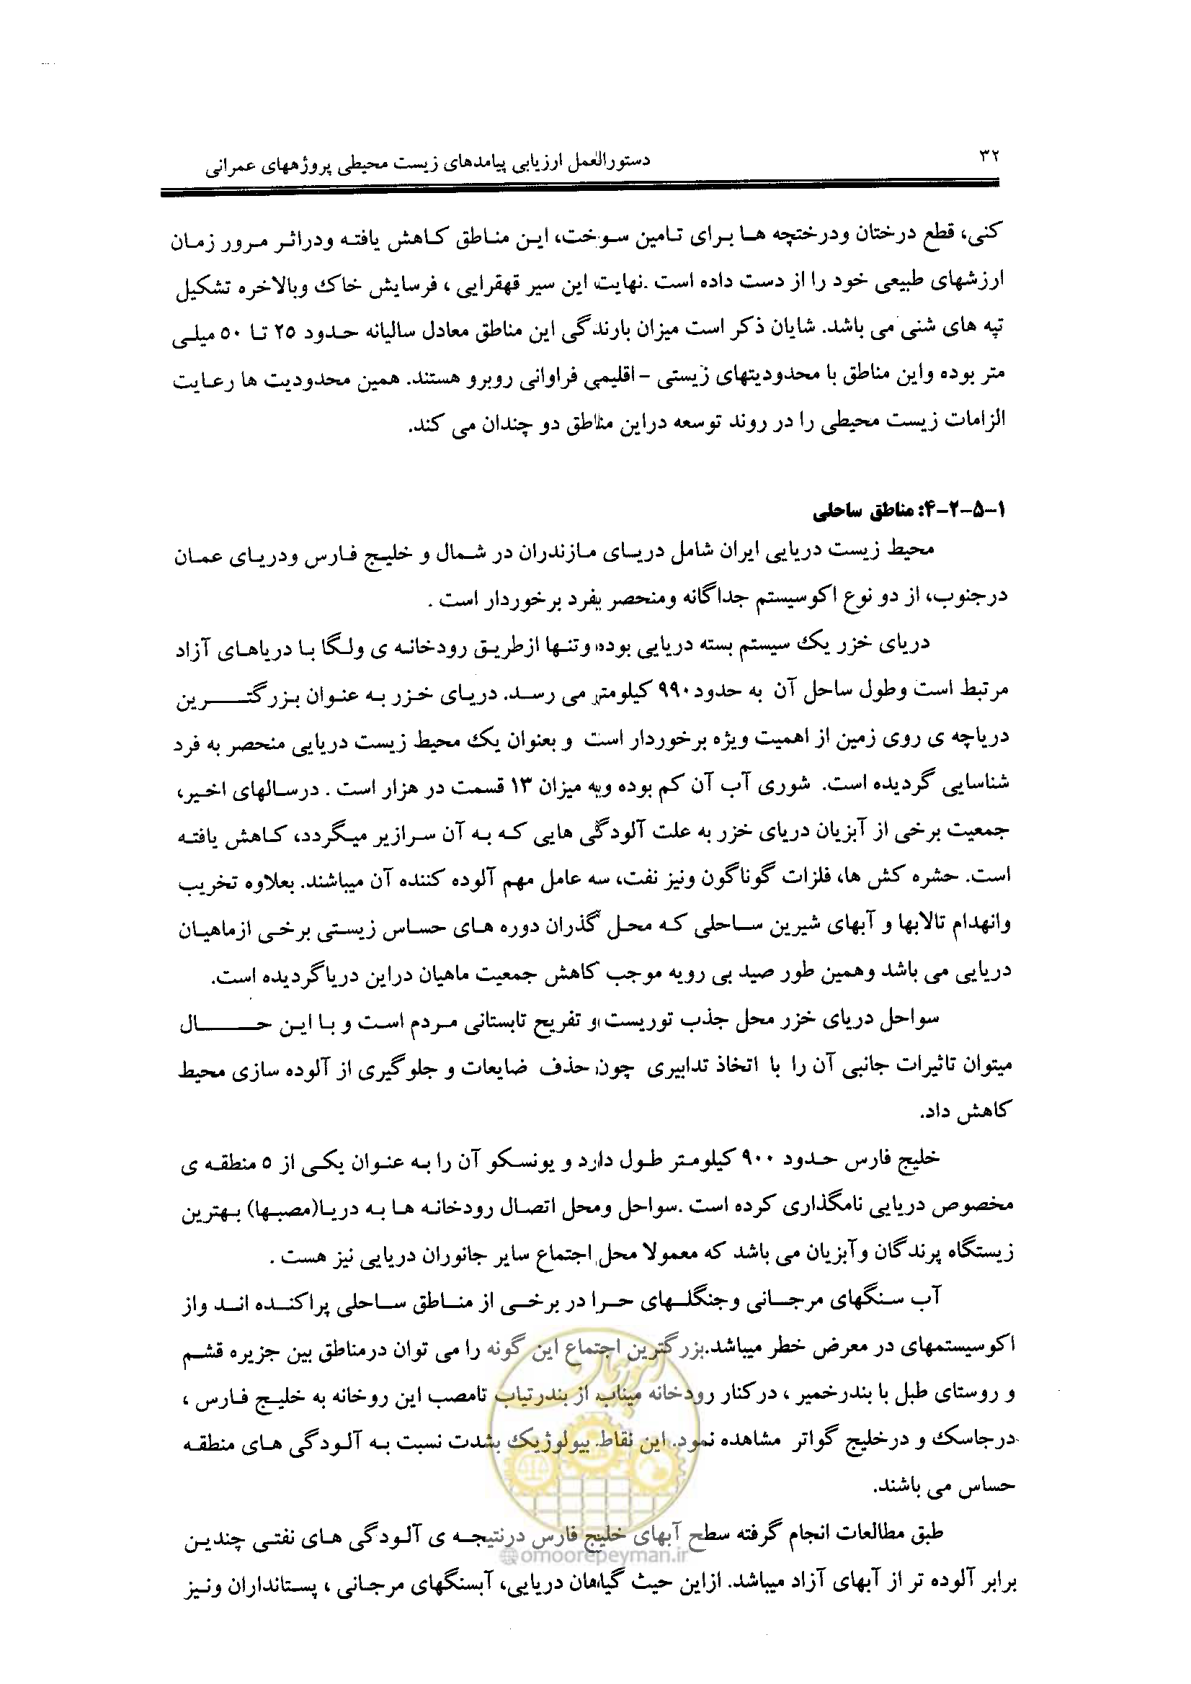 ۳۲
دستورالعمل ارزیابی پیامدهای زیست محیطی پروژههای عمرانی
کنی، قطع درختان ودرختچه ها برای تامین سوخت، این مناطق کاهش یافته ودراثر مرور زمان
ارزشهای طبیعی خود را از دست داده است .نهایت این سیر قهقرایی ، فرسایش خاک وبالاخره تشکیل
تپه های شنی می باشد. شایان ذکر است میزان بارندگی این مناطق معادل سالیانه حدود ۲۵ تا ۵۰ میلی
متر بوده واین مناطق با محدودیتهای زیستی -اقلیمی فراوانی روبرو هستند. همین محدودیت ها رعایت
الزامات زیست محیطی را در روند توسعه دراین مناطق دو چندان می کند.
۱-۵-۲-۴: مناطق ساحلی
محیط زیست دریایی ایران شامل دریای مازندران در شمال و خلیج فارس ودریای عمان
درجنوب، از دو نوع اکوسیستم جداگانه ومنحصر بفرد برخوردار است .
دریای خزر یک سیستم بسته دریایی بوده وتنها ازطریق رودخانه ی ولگا با دریاهای آزاد
مرتبط است وطول ساحل آن به حدود۹۹۰ کیلومتر می رسد. دریای خزر به عنوان بزرگترین
دریاچه ی روی زمین از اهمیت ویژه برخوردار است و بعنوان یک محیط زیست دریایی منحصر به فرد
شناسایی گردیده است. شوری آب آن کم بوده وبه میزان ۱۳ قسمت در هزار است . درسالهای اخیر،
جمعیت برخی از آبزیان دریای خزر به علت آلودگی هایی که به آن سرازیر میگردد، کاهش یافته
است. حشره کش ها، فلزات گوناگون ونیز نفت، سه عامل مهم آلوده کننده آن میباشند. بعلاوه تخریب
وانهدام تالابها و آبهای شیرین ساحلی که محل گذران دوره های حساس زیستی برخی ازماهیان
دریایی می باشد وهمین طور صید بی رویه موجب کاهش جمعیت ماهیان دراین دریاگردیده است.
سواحل دریای خزر محل جذب توریست و تفریح تابستانی مردم است و با این حال
میتوان تاثیرات جانبی آن را با اتخاذ تدابیری چون حذف ضایعات و جلوگیری از آلوده سازی محیط
کاهش داد.
خلیج فارس حدود ۹۰۰ کیلومتر طول دارد و یونسکو آن را به عنوان یکی از ۵ منطقه ی
مخصوص دریایی نامگذاری کرده است .سواحل ومحل اتصال رودخانه ها به دریا(مصبها) بهترین
زیستگاه پرندگان وآبزیان می باشد که معمولا محل اجتماع سایر جانوران دریایی نیز هست .
آب سنگهای مرجانی وجنگلهای حرا در برخی از مناطق ساحلی پراکنده اند واز
اکوسیستمهای در معرض خطر میباشد.بزرگترین اجتماع این گونه را می توان درمناطق بین جزیره قشم
و روستای طبل با بندرخمیر ، درکنار رودخانه میناب از بندرتیاب تامصب این روخانه به خلیج فارس ،
درجاسک و درخلیج گواتر مشاهده نمود. این نقاط بیولوژیک بشدت نسبت به آلودگی های منطقه
حساس می باشند.
طبق مطالعات انجام گرفته سطح آبهای خلیج فارس درنتیجه ی آلودگی های نفتی چندین
برابر آلوده تر از آبهای آزاد میباشد. ازاین حیث گیاهان دریایی، آبسنگهای مرجانی ، پستانداران ونیز
امور پیمان
@omoorepeyman.ir